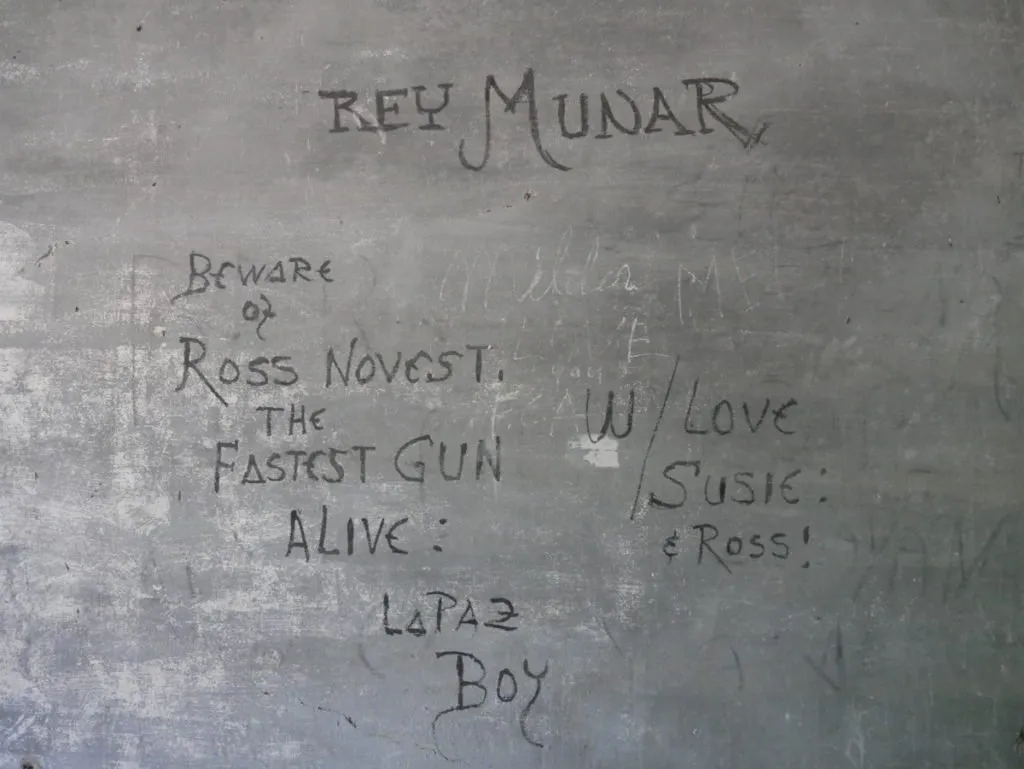 REY MUNAR
BEWARE
of
ROSS NOVEST.
THE
FASTEST GUN
ALIVE:
W/LOVE
SUSIE:
& ROSS!
LAPAZ
BOY